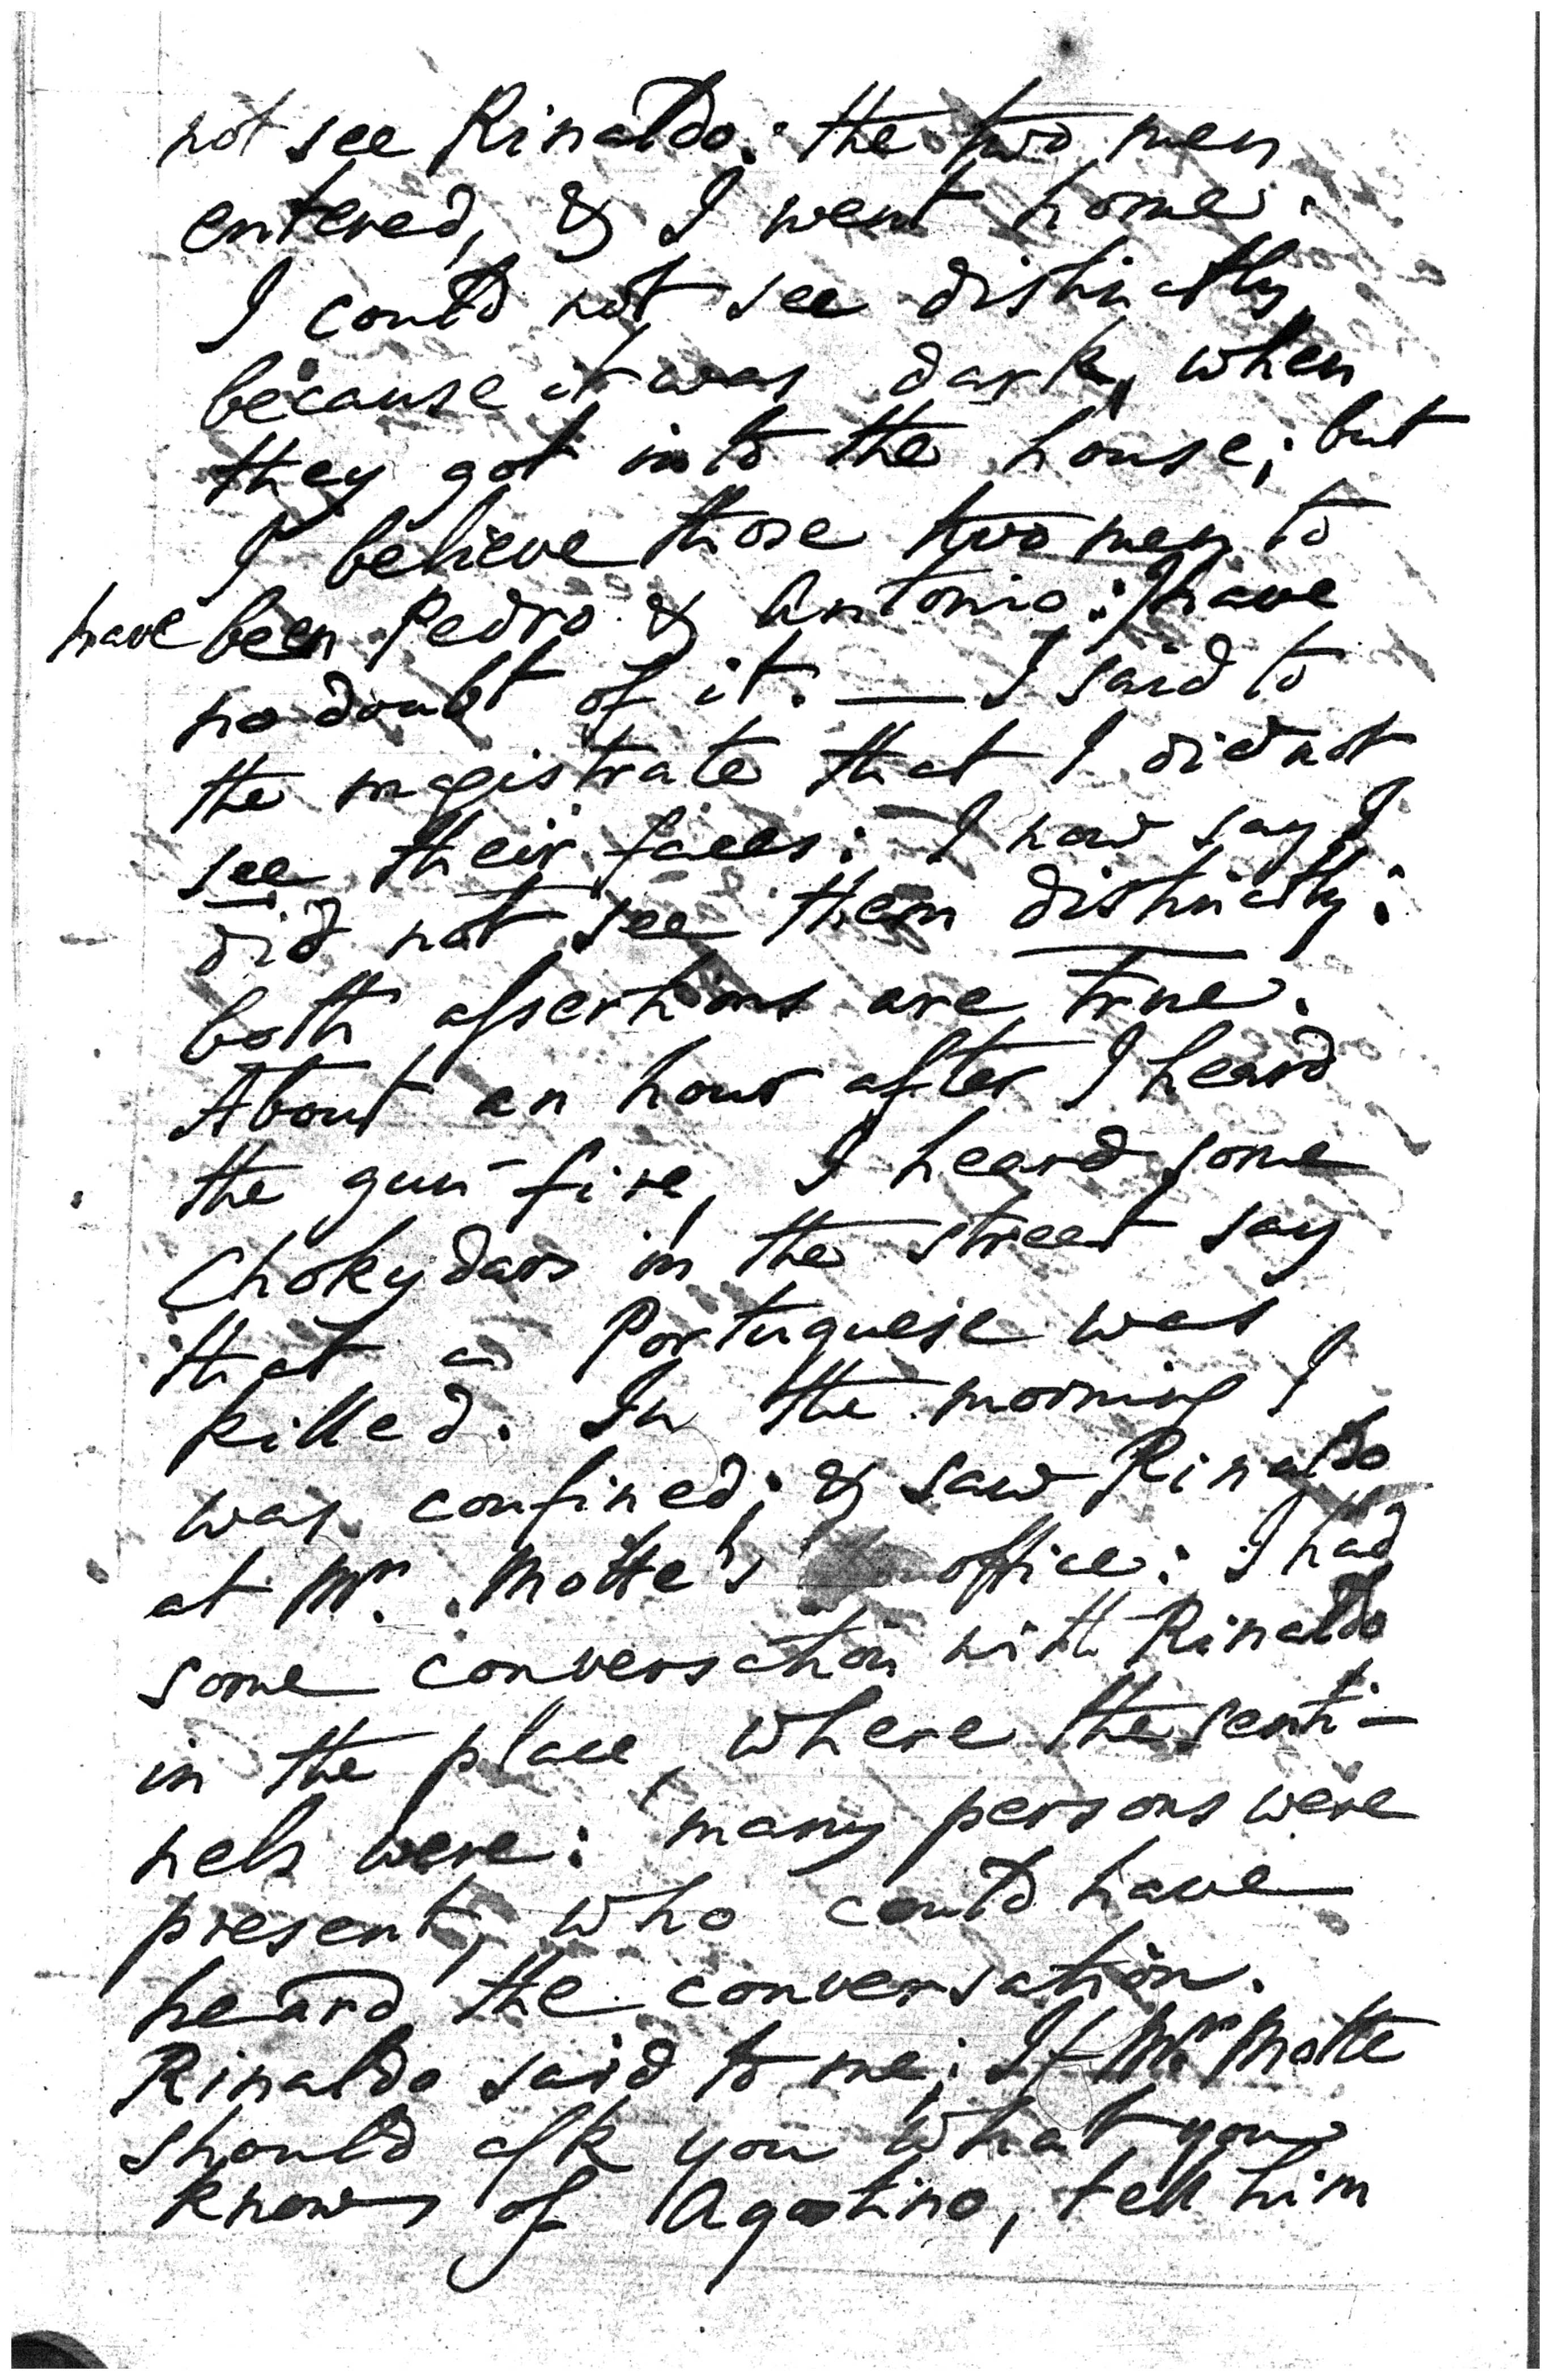 not see Rinaldo: the two men
entered, & I went home.
I could not see distinctly,
because it was dark, when
they got into the house; but
I believe those two men to
have been Pedro & Antonio: I have
no doubt of it. — I said to
the magistrate that I did not
see their faces: I now say I
did not see them distinctly:
both assertions are true.
About an hour after I heard
the gun-fire, I heard some
Chokydars in the street say
that a Portuguese was
killed. In the morning I
was confined; & saw Rinaldo
at Mr. Motte's office: I had
some conversation with Rinaldo
in the place, where the senti-
nels were: many persons were
present, who could have
heard the conversation.
Rinaldo said to me; If Mr. Motte
should ask you what you
know of Agostino, tell him